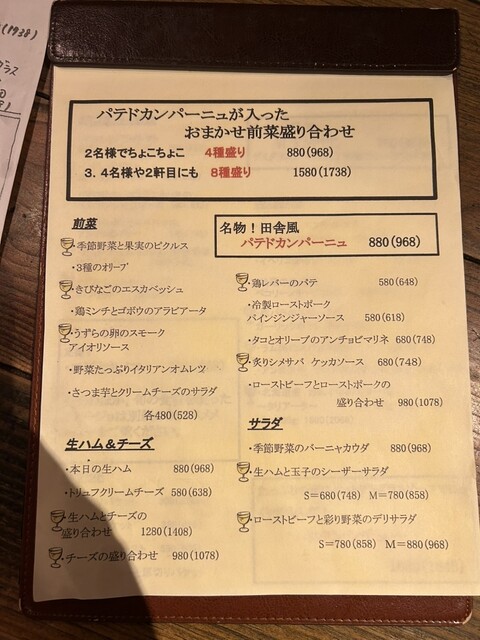 (1938)
グラス
パテドカンパーニュが入った
おまかせ前菜盛り合わせ
2名様でちょこちょこ 4種盛り 880(968)
3．4名様や2軒目にも 8種盛り 1580(1738)
前菜
・季節野菜と果実のピクルス
・3種のオリーブ
・きびなごのエスカベッシュ
・鶏ミンチとゴボウのアラビアータ
・うずらの卵のスモーク
アイオリソース
・野菜たっぷりイタリアンオムレツ
・さつま芋とクリームチーズのサラダ
各480(528)
生ハム＆チーズ
・本日の生ハム 880(968)
・トリュフクリームチーズ 580(638)
・生ハムとチーズの
盛り合わせ 1280(1408)
・チーズの盛り合わせ 980(1078)
名物！田舎風
パテドカンパーニュ 880(968)
・鶏レバーのパテ 580(648)
・冷製ローストポーク
パインジンジャーソース 580(618)
・タコとオリーブのアンチョビマリネ 680(748)
・炙りシメサバ ケッカソース 680(748)
・ローストビーフとローストポークの
盛り合わせ 980(1078)
サラダ
・季節野菜のバーニャカウダ 880(968)
・生ハムと玉子のシーザーサラダ
S＝680(748) M＝780(858)
・ローストビーフと彩り野菜のデリサラダ
S＝780(858) M＝880(968)